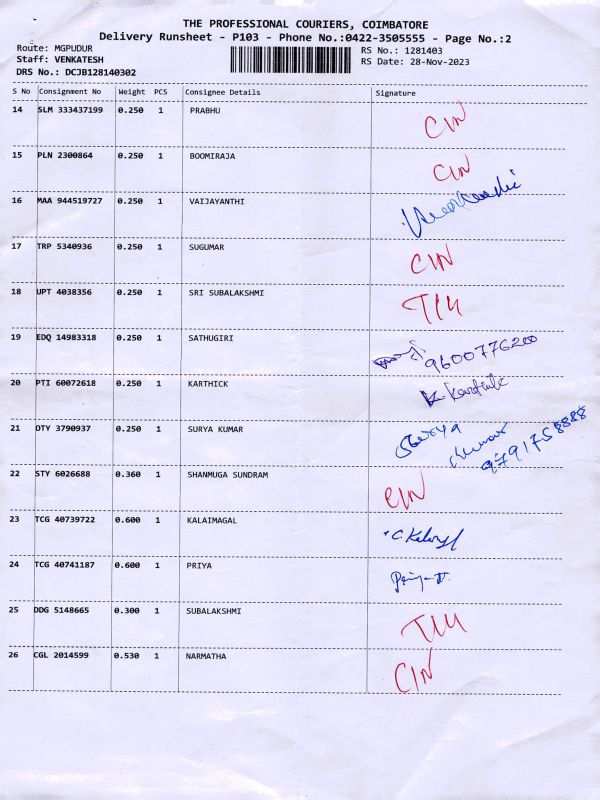 THE PROFESSIONAL COURIERS, COIMBATORE
Delivery Runsheet - P103 - Phone No.:0422-3505555 - Page No.:2
Route: MGPUDUR
RS No.: 1281403
Staff: VENKATESH
RS Date: 28-Nov-2023
DRS No.: DCJB128140302
S No Consignment No Weight PCS Consignee Details Signature
14 SLM 333437199 0.250 1 PRABHU CIN
15 PLN 2300864 0.250 1 BOOMIRAJA CIN
16 MAA 944519727 0.250 1 VAIJAYANTHI
17 TRP 5340936 0.250 1 SUGUMAR CIN
18 UPT 4038356 0.250 1 SRI SUBALAKSHMI
19 EDQ 14983318 0.250 1 SATHUGIRI 9600776200
20 PTI 60072618 0.250 1 KARTHICK K. Karthik
21 OTY 3790937 0.250 1 SURYA KUMAR Surya Kumar 9791758888
22 STY 6026688 0.360 1 SHANMUGA SUNDRAM CIN
23 TCG 40739722 0.600 1 KALAIMAGAL
24 TCG 40741187 0.600 1 PRIYA
25 DDG 5148665 0.300 1 SUBALAKSHMI
26 CGL 2014599 0.530 1 NARMATHA CIN